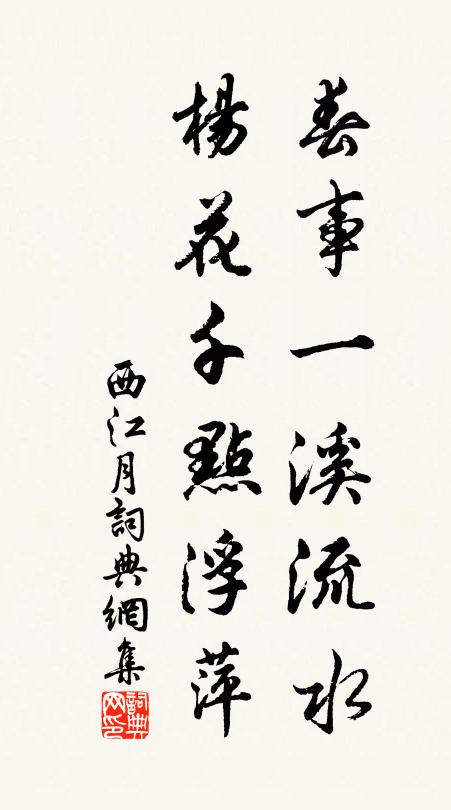 春事一溪流水
楊花千點浮萍
西江月詞典網集
詞典網印